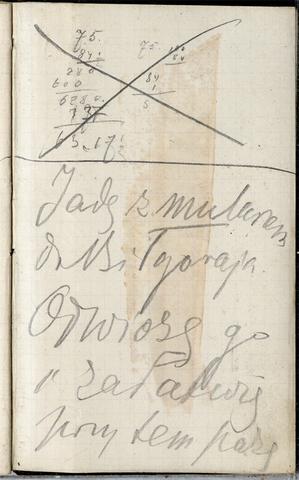 75.
84
280
600
6280.
132
63.17½
75.
84
5
Jadę z mularzem
do Biłgoraja.
Odwiozę go
i załatwię
przy tem parę